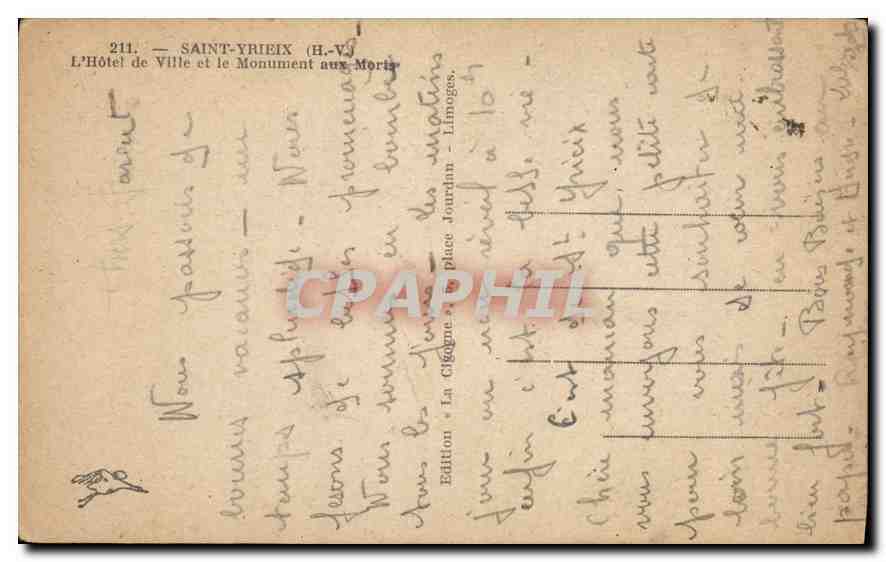 211. — SAINT-YRIEIX (H.-V.)
L'Hôtel de Ville et le Monument aux Morts
Edition « La Cigogne » place Jourdan - Limoges.
CPAPHIL
Nous passons de
bonnes vacances — un
temps splendide. Nous
fesons de belles promenades.
Nous sommes en bombe
tous les jours — les matins
jour un réveil à 10h
enfin c'est la belle vie -
C'est de St. Yrieix
Chère maman que nous
vous envoyons cette petite carte
pour vous souhaiter de
loin mais de cœur une
bonne fête - en vous embrassant
bien fort - Bons Baisers au
papa - Raymonde et